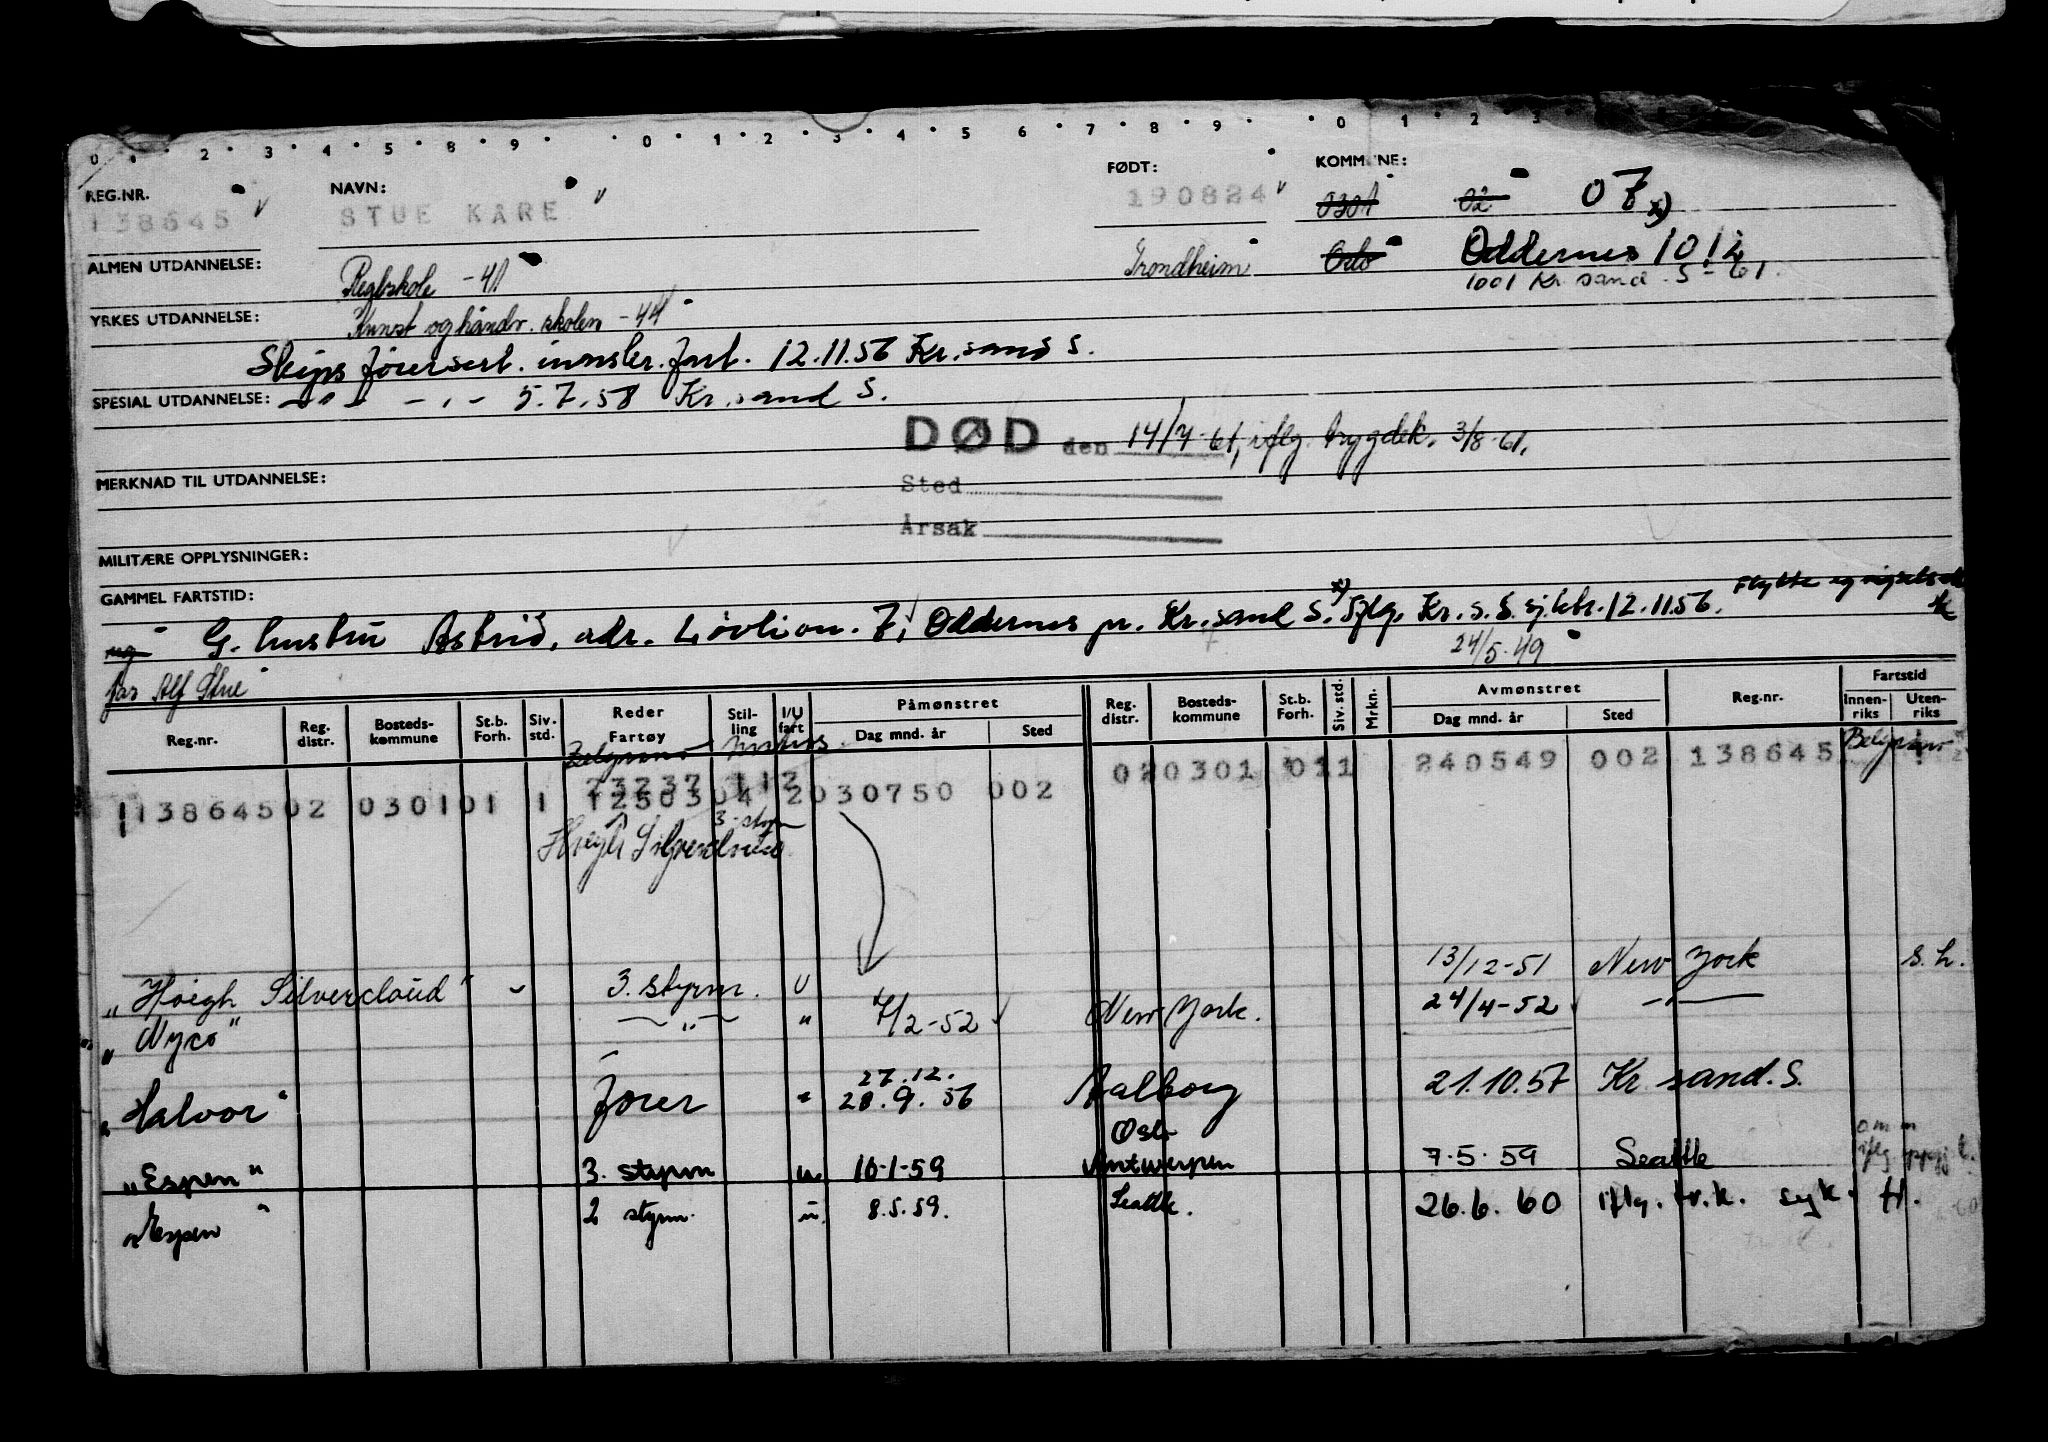 0 1 2 3 4 5 8 9 0 1 2 3 4 5 6 7 8 9 0 1 2 3
REG.NR. NAVN: FØDT: KOMMUNE:
138645 STUE KARE 190824 0301 02 07 x)
ALMEN UTDANNELSE: Realskole -41 Trondheim Oslo Oddernes 1012
1001 Kr.sand S-61.
YRKES UTDANNELSE: Kunst og håndv. skolen -44
Skipsførersert. innskr. fart. 12.11.56 Kr.sand S.
SPESIAL UTDANNELSE: -"- -"- 5.7.58 Kr.sand S.
DØD den 14/7-61, iflg. trygdek. 3/8-61.
MERKNAD TIL UTDANNELSE:
Sted
Årsak
MILITÆRE OPPLYSNINGER:
GAMMEL FARTSTID:
G. hustru Astrid, adr. Løvlivn. 7, Oddernes pr. Kr.sand S. x) Iflg. Kr.s.S. sj.ktr. 12.11.56.
24/5-49
far Alf Stue
Reg.nr. Reg. distr. Bosteds- kommune St.b. Forh. Siv. std. Reder Fartøy Stil- ling I/U fart Påmønstret Dag mnd. år Sted Reg. distr. Bosteds- kommune St.b. Forh. Siv. std. Mrkn. Avmønstret Dag mnd. år Sted Reg.nr. Fartstid Innen- riks Uten- riks
Belgrano
23237 112 02 0301 011 240549 002 138645 Belgrano
138645 02 0301 01 1 12503 04 2 030750 002
3. styrm
Høegh Silvercloud
"Høegh Silvercloud" 3. styrm. U 13/12-51 New York s.h.
"Nyco" -"- " 7/2-52 New York. 24/4-52 -"-
27.12.
"Halvor" fører " 28.9.56 Aalborg 21.10.57 Kr.sand.S.
Oslo
"Espen" 3. styrm u. 10-1-59 Antwerpen 7.5.59 Seattle
"Espen" 2 styrm. u. 8.5.59. Seattle. 26.6.60 iflg. tr.k. syk.